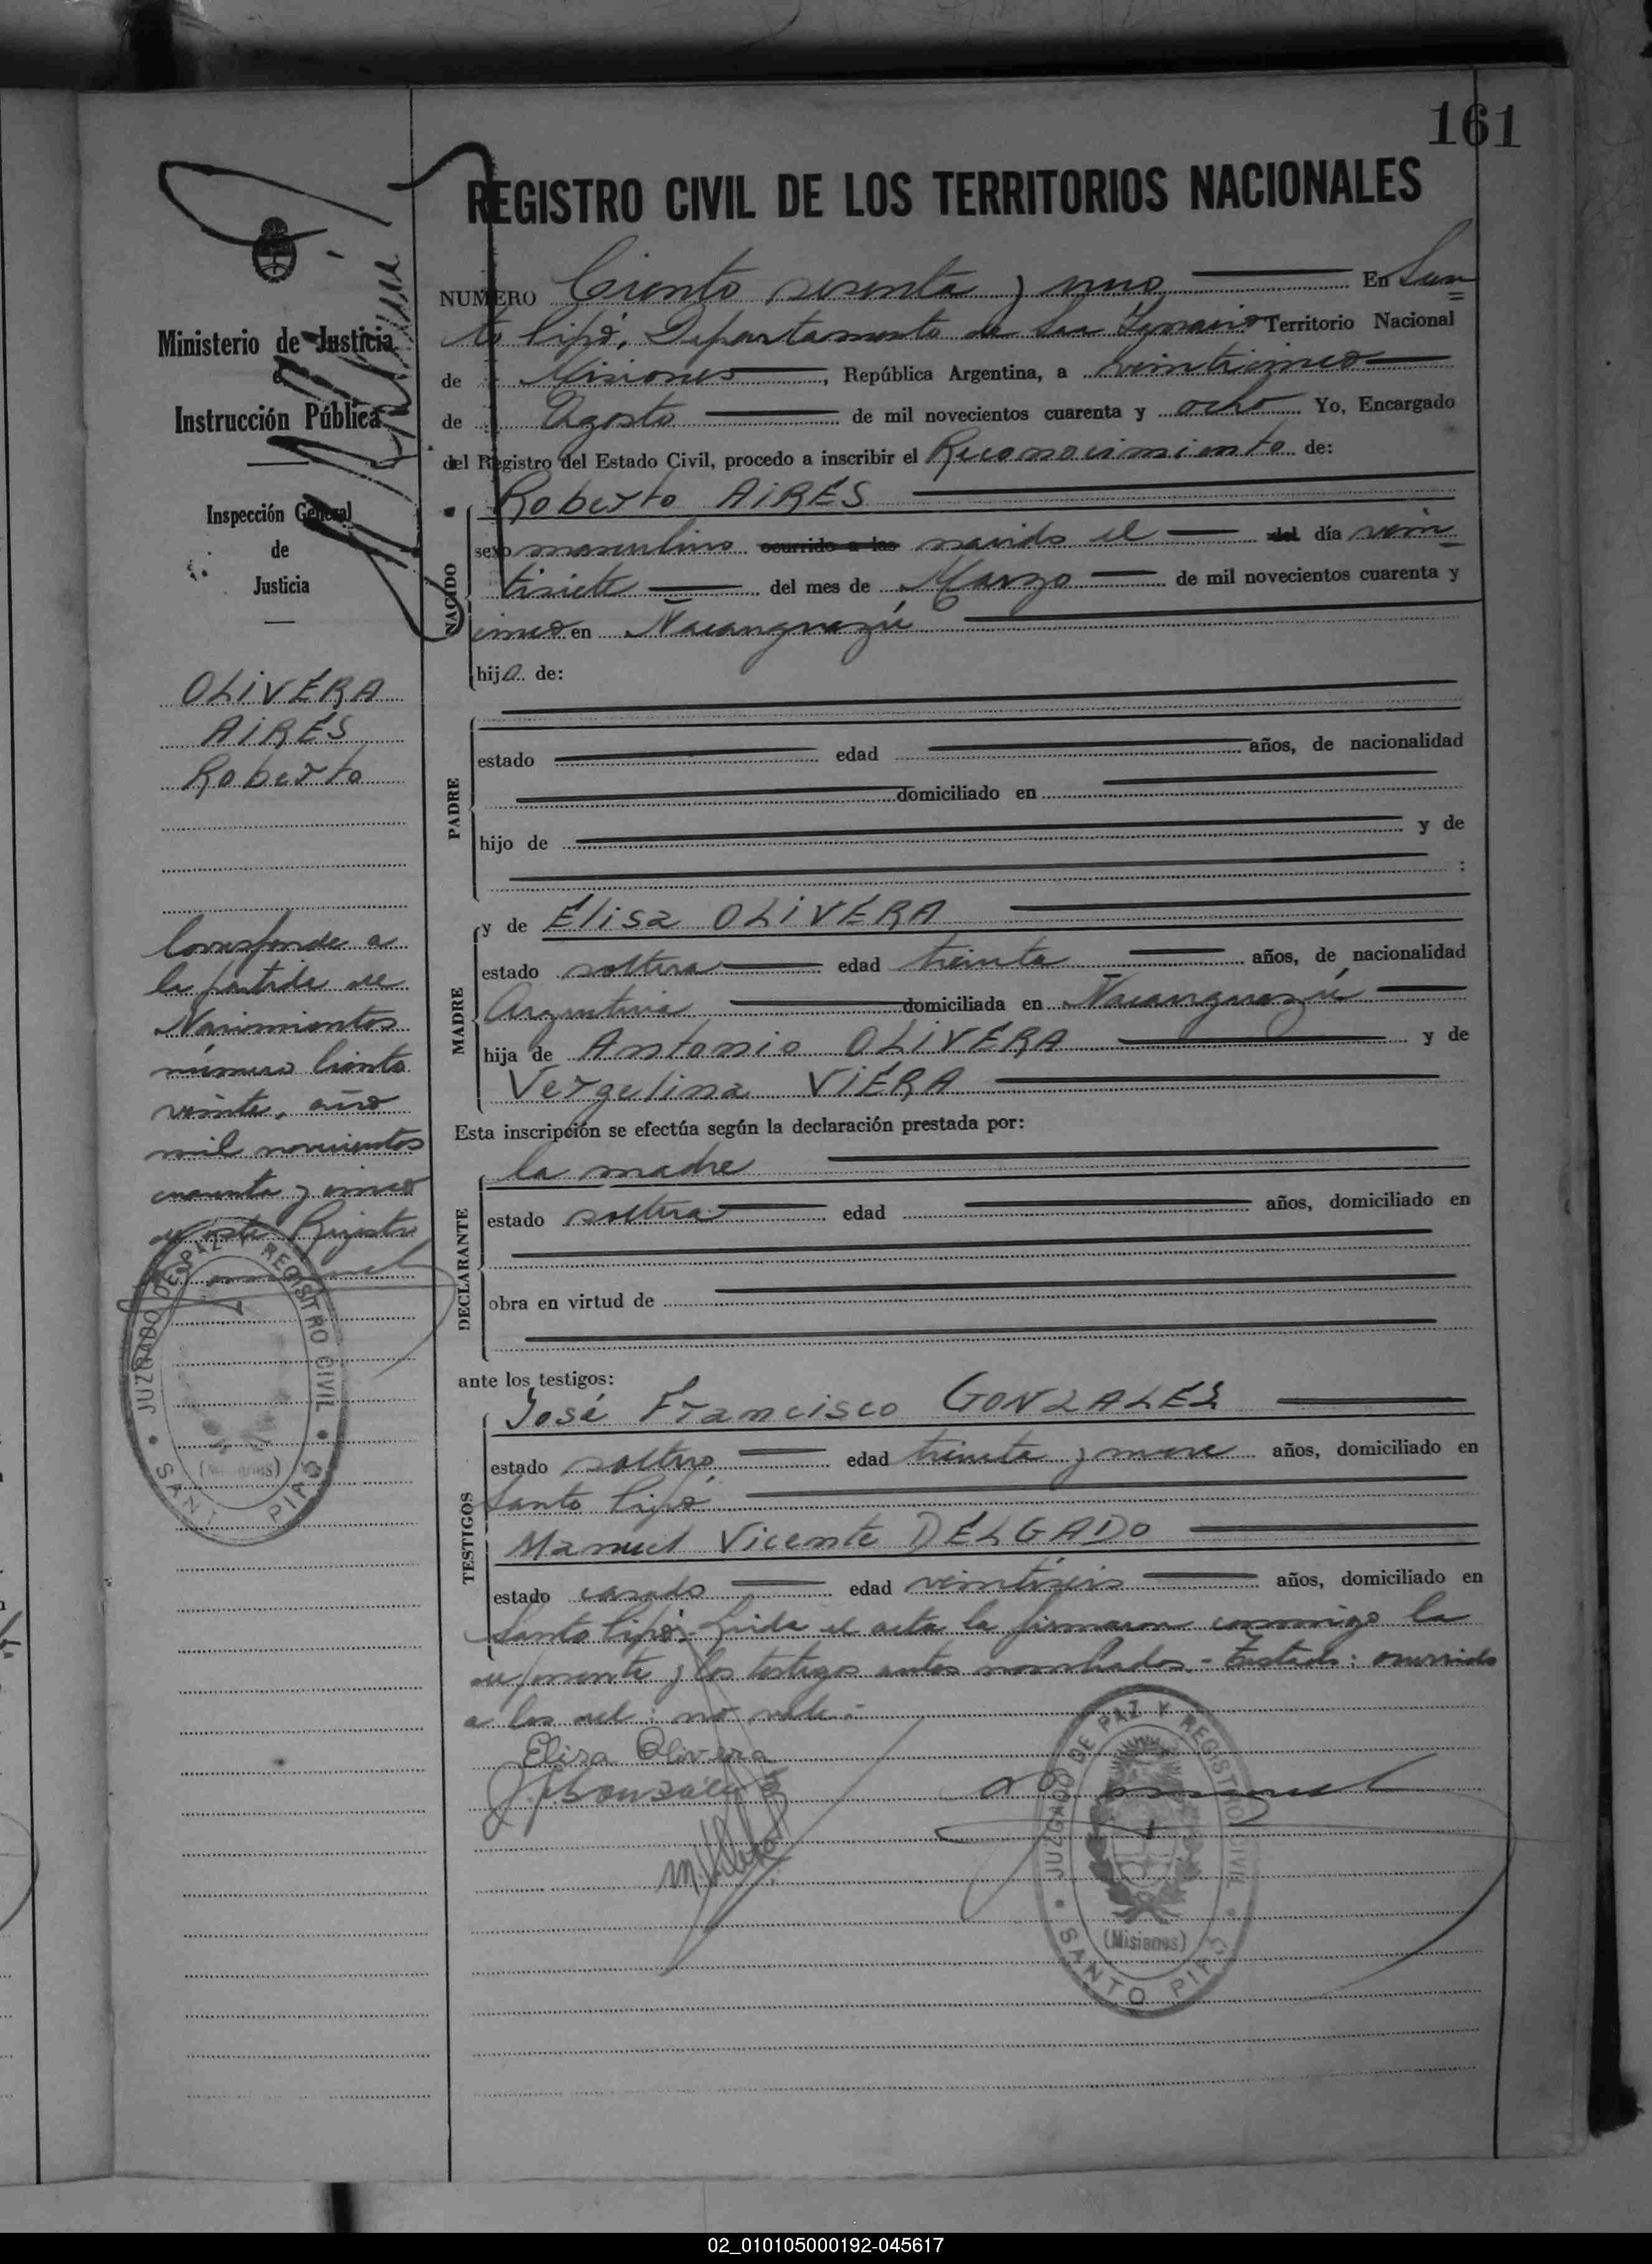 161
REGISTRO CIVIL DE LOS TERRITORIOS NACIONALES
NUMERO Ciento sesenta y uno En San
to Pipó, Departamento de San Ignacio Territorio Nacional
de Misiones, República Argentina, a veinticinco
de Agosto de mil novecientos cuarenta y ocho Yo, Encargado
del Registro del Estado Civil, procedo a inscribir el Reconocimiento de:
NACIDO
Roberto AIRES
sexo masculino ocurrido a las nacido el del día vein
tisiete del mes de Marzo de mil novecientos cuarenta y
cinco en Ñacanguazú
hijo de:
PADRE
estado edad años, de nacionalidad
domiciliado en
hijo de y de
:
MADRE
y de Elisa OLIVERA
estado soltera edad treinta años, de nacionalidad
Argentina domiciliada en Ñacanguazú
hija de Antonio OLIVERA y de
Vergelina VIERA
Esta inscripción se efectúa según la declaración prestada por:
DECLARANTE
la madre
estado soltera edad años, domiciliado en
obra en virtud de
ante los testigos:
TESTIGOS
José Francisco GONZALES
estado soltero edad treinta y nueve años, domiciliado en
Santo Pipó
Manuel Vicente DELGADO
estado casado edad veintiseis años, domiciliado en
Santo Pipó.- Leída el acta la firmaron conmigo la
exponente y los testigos antes nombrados.- Testado: ocurrido
a las del: no vale.-
Elisa Olivera
J. F. Gonzáles
JUZGADO DE PAZ Y REGISTRO CIVIL
(Misiones)
SANTO PIPÓ
Ministerio de Justicia
e
Instrucción Pública
Inspección General
de
Justicia
OLIVERA
AIRES
Roberto
Corresponde a
la partida de
Nacimientos
número Ciento
veinte, año
mil novecientos
cuarenta y cinco
de este Registro
JUZGADO DE PAZ Y REGISTRO CIVIL
(Misiones)
SANTO PIPÓ
02_010105000192-045617